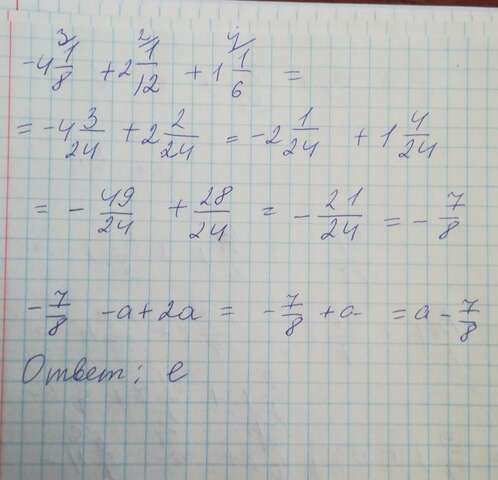 -4 1/8 (3/) + 2 1/12 (2/) + 1 1/6 (4/) =
= -4 3/24 + 2 2/24 = -2 1/24 + 1 4/24
= - 49/24 + 28/24 = - 21/24 = - 7/8
- 7/8 - a + 2a = - 7/8 + a = a - 7/8
Ответ: e